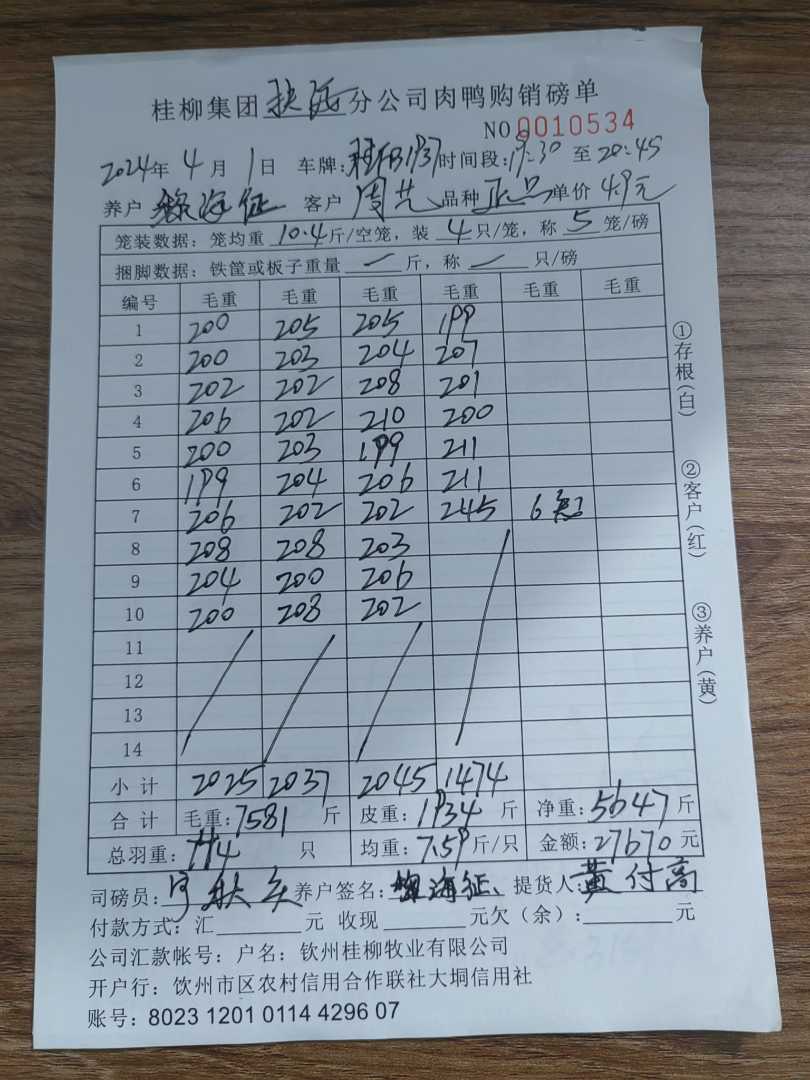 桂柳集团扶绥分公司肉鸭购销磅单
NO 0010534
2024年 4月 1日 车牌: 时间段: 19:30 至 20:45
养户 海征 客户 周艺 品种 正品 单价 4.9元
笼装数据: 笼均重 10.4 斤/空笼, 装 4 只/笼, 称 5 笼/磅
捆脚数据: 铁筐或板子重量 — 斤, 称 — 只/磅
编号 毛重 毛重 毛重 毛重 毛重 毛重
1 200 205 205 199
2 200 203 204 207
3 202 202 208 201
4 206 202 210 200
5 200 203 199 211
6 199 204 206 211
7 206 202 202 245 6
8 208 208 203
9 204 200 206
10 200 208 202
11
12
13
14
小计 2025 2037 2045 1474
合计 毛重: 7581 斤 皮重: 1934 斤 净重: 5647 斤
总羽重: 744 只 均重: 7.59 斤/只 金额: 27670 元
司磅员: 秋 养户签名: 海征 提货人: 黄付高
付款方式: 汇 元 收现 元欠(余): 元
公司汇款帐号: 户名: 钦州桂柳牧业有限公司
开户行: 钦州市区农村信用合作联社大垌信用社
账号: 8023 1201 0114 4296 07
①存根(白)
②客户(红)
③养户(黄)